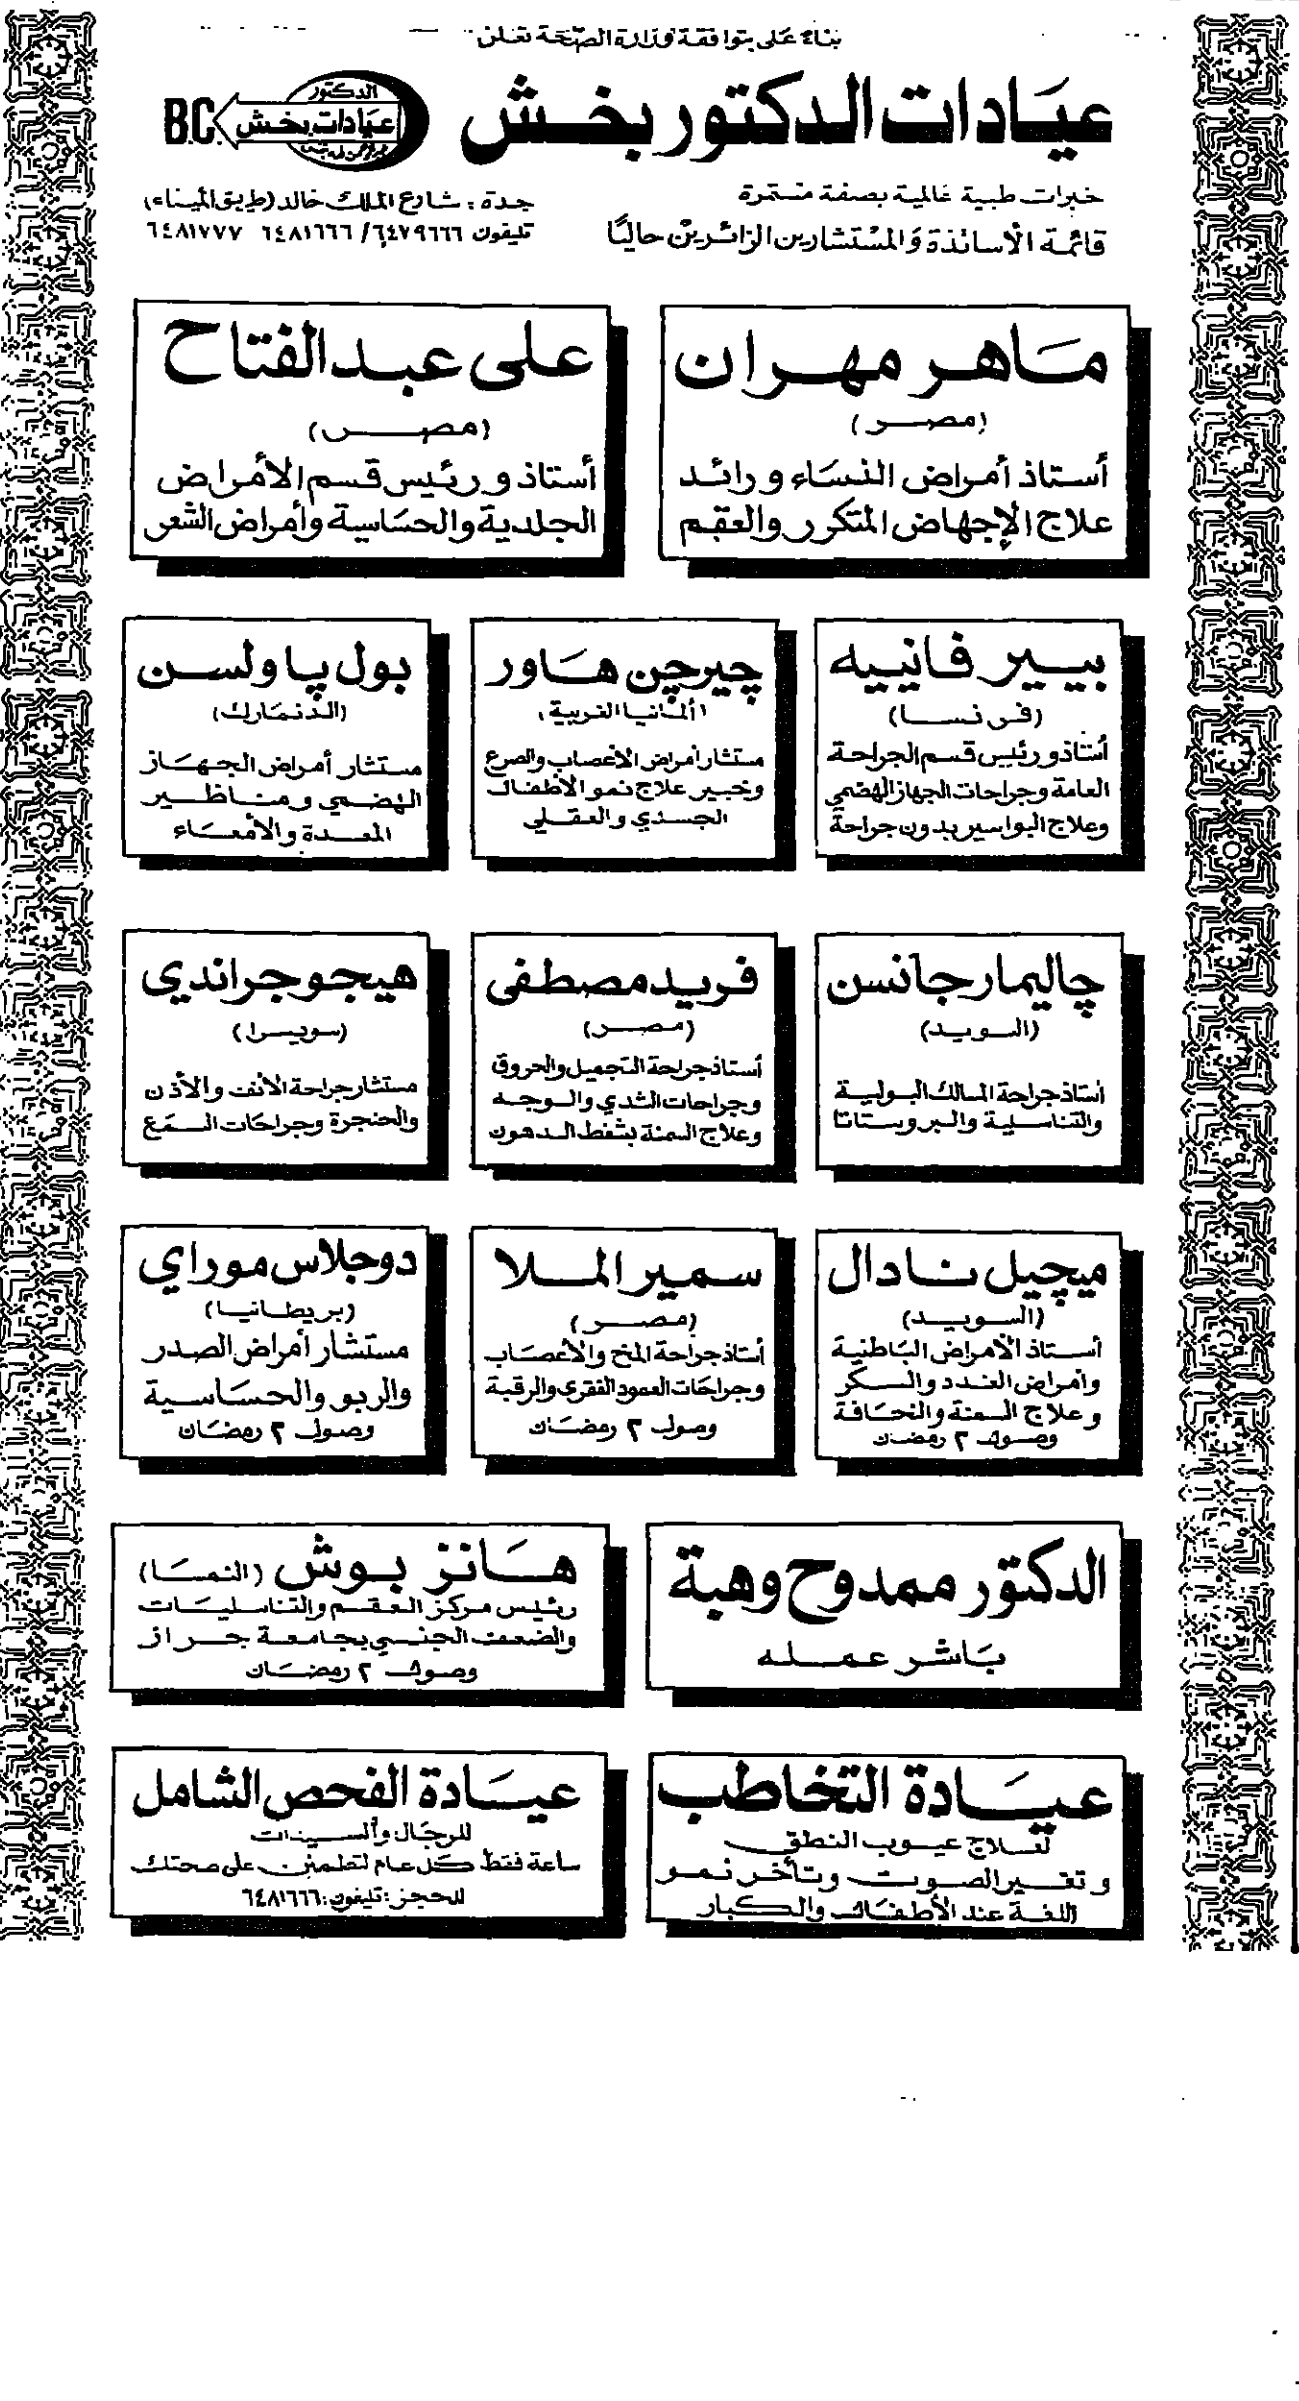 بناءً على موافقة وزارة الصحة تعلن
عيادات الدكتور بخش
الدكتور
عيادات بخش
B.C.
خبرات طبية عالمية بصفة مستمرة
قائمة الأساتذة والمستشارين الزائرين حاليًا
جدة : شارع الملك خالد (طريق الميناء)
تليفون ٦٤٧٩٦٦٦/ ٦٤٨١٦٦٦ ٦٤٨١٧٧٧
ماهر مهران
(مصر)
أستاذ أمراض النساء ورائد
علاج الإجهاض المتكرر والعقم
على عبد الفتاح
(مصر)
أستاذ ورئيس قسم الأمراض
الجلدية والحساسية وأمراض الشعر
بيير فانييه
(فرنسا)
أستاذ ورئيس قسم الجراحة
العامة وجراحات الجهاز الهضمي
وعلاج البواسير بدون جراحة
چيرچن هاور
(ألمانيا الغربية)
مستشار أمراض الأعصاب والصرع
وخبير علاج نمو الأطفال
الجسدي والعقلي
بول پاولسن
(الدنمارك)
مستشار أمراض الجهاز
الهضمي ومناظير
المعدة والأمعاء
چاليمار جانسن
(السويد)
أستاذ جراحة المسالك البولية
والتناسلية والبروستاتا
فريد مصطفى
(مصر)
أستاذ جراحة التجميل والحروق
وجراحات الثدي والوجه
وعلاج السمنة بشفط الدهون
هيجو جراندي
(سويسرا)
مستشار جراحة الأنف والأذن
والحنجرة وجراحات السمع
ميچيل نادال
(السويد)
أستاذ الأمراض الباطنية
وأمراض الغدد والسكر
وعلاج السمنة والنحافة
وصول ٢ رمضان
سمير الملا
(مصر)
أستاذ جراحة المخ والأعصاب
وجراحات العمود الفقرى والرقبة
وصول ٢ رمضان
دوجلاس موراي
(بريطانيا)
مستشار أمراض الصدر
والربو والحساسية
وصول ٢ رمضان
الدكتور ممدوح وهبة
باشر عمله
هانز بوش (النمسا)
رئيس مركز العقم والتناسليات
والضعف الجنسي بجامعة جراز
وصول ٢ رمضان
عيادة التخاطب
لعلاج عيوب النطق
وتغيير الصوت وتأخر نمو
اللغة عند الأطفال والكبار
عيادة الفحص الشامل
للرجال والسيدات
ساعة فقط كل عام لتطمئن على صحتك
للحجز : تليفون : ٦٤٨١٦٦٦